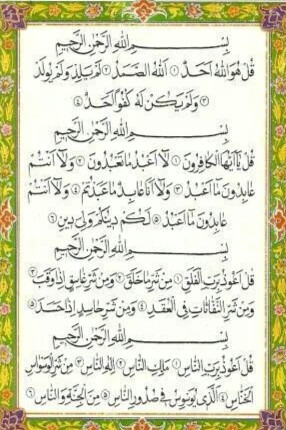 بِسْمِ اللهِ الرَّحْمٰنِ الرَّحِيمِ
قُلْ هُوَ اللهُ اَحَدٌ ۱ اَللهُ الصَّمَدُ ۲ لَمْ يَلِدْ وَلَمْ يُولَدْ
۳ وَلَمْ يَكُنْ لَهُ كُفُوًا اَحَدٌ ٤
بِسْمِ اللهِ الرَّحْمٰنِ الرَّحِيمِ
قُلْ يَا اَيُّهَا الْكَافِرُونَ ۱ لَا اَعْبُدُ مَا تَعْبُدُونَ ۲ وَلَا اَنْتُمْ
عَابِدُونَ مَا اَعْبُدُ ۳ وَلَا اَنَا عَابِدٌ مَا عَبَدْتُمْ ٤ وَلَا اَنْتُمْ
عَابِدُونَ مَا اَعْبُدُ ٥ لَكُمْ دِينُكُمْ وَلِيَ دِينِ ٦
بِسْمِ اللهِ الرَّحْمٰنِ الرَّحِيمِ
قُلْ اَعُوذُ بِرَبِّ الْفَلَقِ ۱ مِنْ شَرِّ مَا خَلَقَ ۲ وَمِنْ شَرِّ غَاسِقٍ اِذَا وَقَبَ ۳
وَمِنْ شَرِّ النَّفَّاثَاتِ فِي الْعُقَدِ ٤ وَمِنْ شَرِّ حَاسِدٍ اِذَا حَسَدَ ٥
بِسْمِ اللهِ الرَّحْمٰنِ الرَّحِيمِ
قُلْ اَعُوذُ بِرَبِّ النَّاسِ ۱ مَلِكِ النَّاسِ ۲ اِلٰهِ النَّاسِ ۳ مِنْ شَرِّ الْوَسْوَاسِ
الْخَنَّاسِ ٤ اَلَّذِي يُوَسْوِسُ فِي صُدُورِ النَّاسِ ٥ مِنَ الْجِنَّةِ وَالنَّاسِ ٦